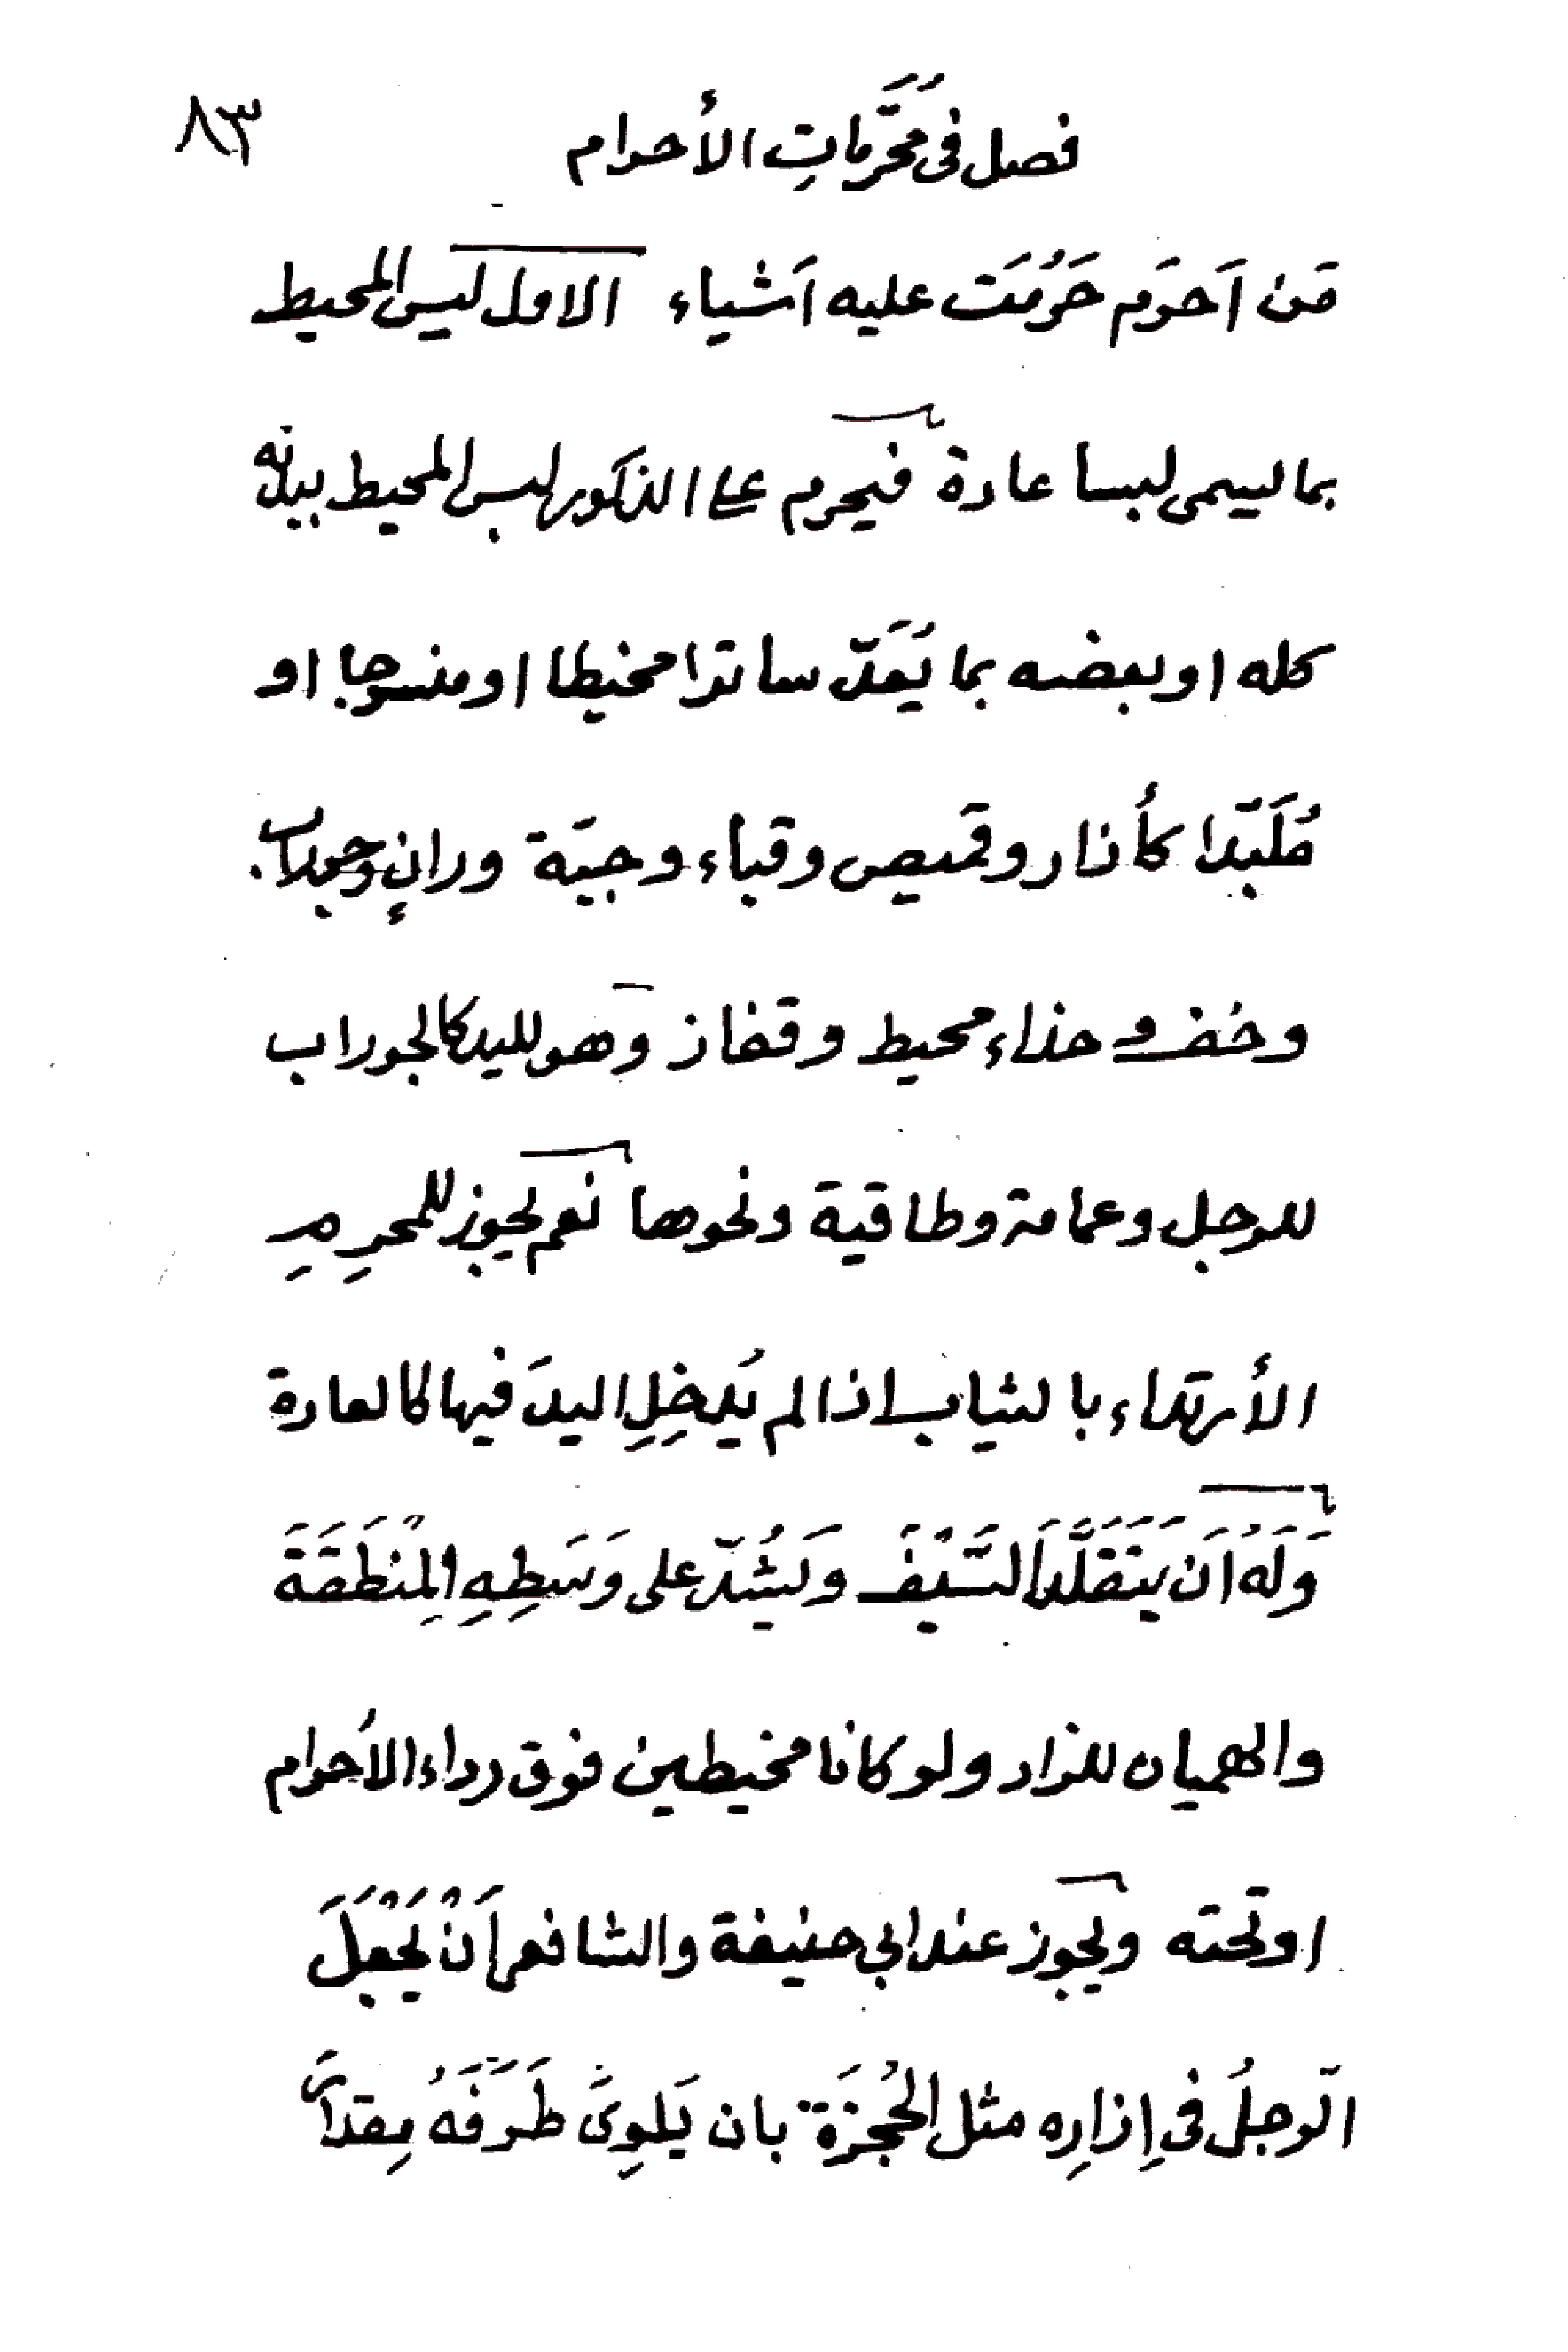 فصل فى مُحَرَّمَاتِ الأحرام ٨٣
مَن اَحرَم حَرُمَت عليه اَشياء الاول لبس المحيط
بما يسمى لبسا عادة فيحرم على الذكور لبس المحيط ببدنه
كله او بعضه بما يُعَدّ ساترا مخيطا او منسوجا او
مُلَبَّدا كأزار وقميص وقباء وجبَّة ورانٍ وجوراب
وخف وحذاء محيط وقفاز وهو لليد كالجوراب
للرجل وعمامة وطاقية ونحوها نعم يجوز للمحرِمِ
الأرتداء بالثياب اذا لم يُدخِلِ اليدَ فيها كالعادة
وَلَهُ اَن يَتَقَلَّدَ السَّيْفَ وَيَشُدّ على وَسَطِهِ المِنْطَقَةَ
والهميان للزاد ولو كانا مخيطين فوق رداء الأحرام
او تحته ويجوز عند ابي حنيفة والشافعى اَنْ يَجْعَلَ
الرّجلُ فى اِزارِه مثل الحُجزَة بان يَلوِىَ طَرَفَهُ مِقداَ